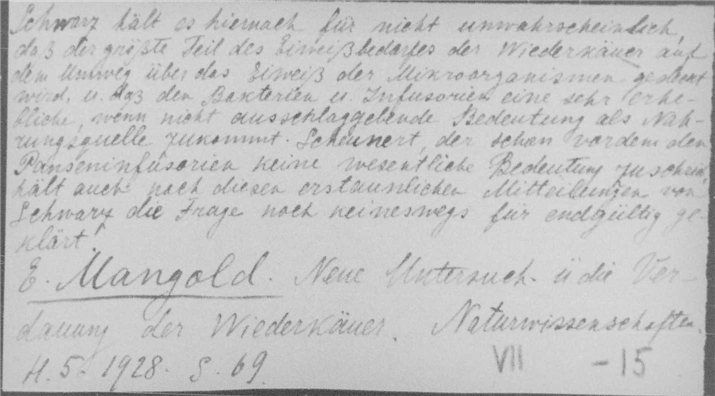 Schwarz hält es hiernach für nicht unwahrscheinlich,
daß der größte Teil des Eiweißbedarfes der Wiederkäuer auf
dem Umweg über das Eiweiß der Mikroorganismen gedeckt
wird, u. daß den Bakterien u. Infusorien eine sehr erhe-
bliche, wenn nicht ausschlaggebende Bedeutung als Nah-
rungsquelle zukommt. Scheunert, der schon vordem den
Panseninfusorien keine wesentliche Bedeutung zuschrieb,
hält auch nach diesen erstaunlichen Mitteilungen von
Schwarz die Frage noch keineswegs für endgültig ge-
klärt!
E. Mangold. Neue Untersuch. ü die Ver-
dauung der Wiederkäuer. Naturwissenschaften.
H. 5 - 1928. S. 69.
VII - 15